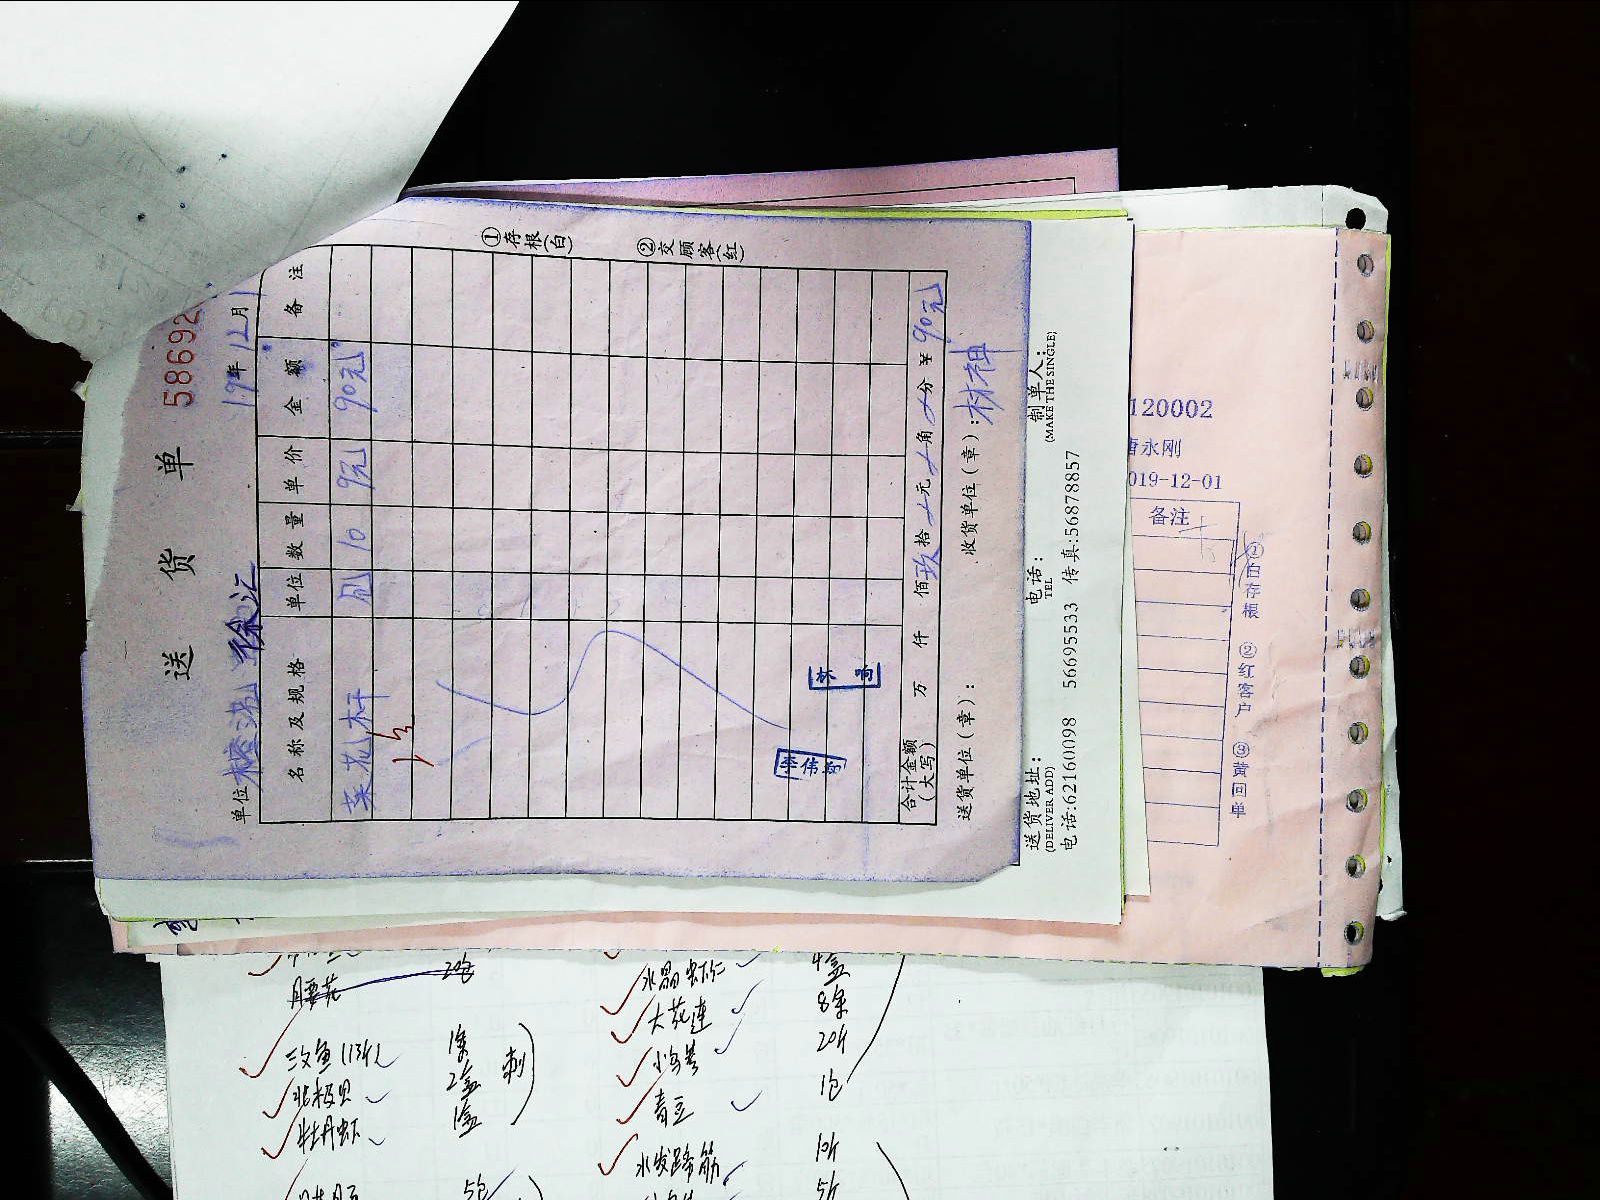 送 货 单
58692
19年12月1
徐汇
名称及规格 单位 数量 单价 金额 备注
菜花杆 10 9元 90元
林响
合计金额(大写) 万 仟 佰 玖拾 元 角 分 ¥ 90元
送货单位(章): 收货单位(章):
①存根(白) ②交顾客(红)
送货地址: 电话: 制单人:
(DELIVER ADD) TEL (MAKE THE SINGLE)
电话:62160098 56695533 传真:56878857
120002
唐永刚
019-12-01
备注
②红客户 ③黄回单
腰花 20包
三文鱼(13斤) 1条
北极贝 2盒 刺
牡丹虾 1盒
5包
水晶虾仁 4盒
大花莲 8条
20斤
青豆 1包
水发蹄筋 10斤
5斤